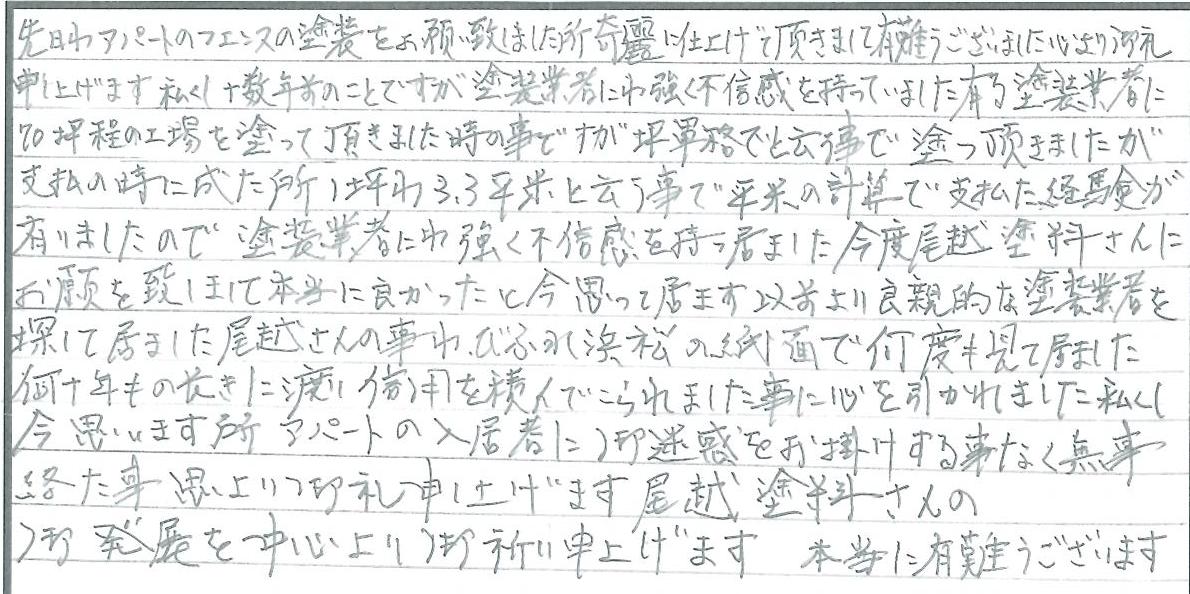 先日わアパートのフェンスの塗装をお願い致しました所奇麗に仕上げて頂きまして有難うございました心より御礼
申し上げます私くし十数年前のことですが塗装業者にわ強く不信感を持っていました有る塗装業者に
70坪程の工場を塗って頂きました時の事ですが坪単格でと云う事で塗っ頂きましたが
支払の時に成た所1坪わ3.3平米と云う事で平米の計算で支払た経験が
有りましたので塗装業者にわ強く不信感を持っ居ました今度尾越塗料さんに
お願を致しまして本当に良かったと今思って居ます以前より良親的な塗装業者を
探して居ました尾越さんの事わ、びぶれ浜松の紙面で何度も見て居ました
何十年もの長きに渡り信用を積んでこられました事に心を引かれました私くし
今思います所アパートの入居者に御迷惑をお掛けする事なく無事
終た事思より御礼申し上げます尾越塗料さんの
御発展を中心より御祈り申上げます 本当に有難うございます